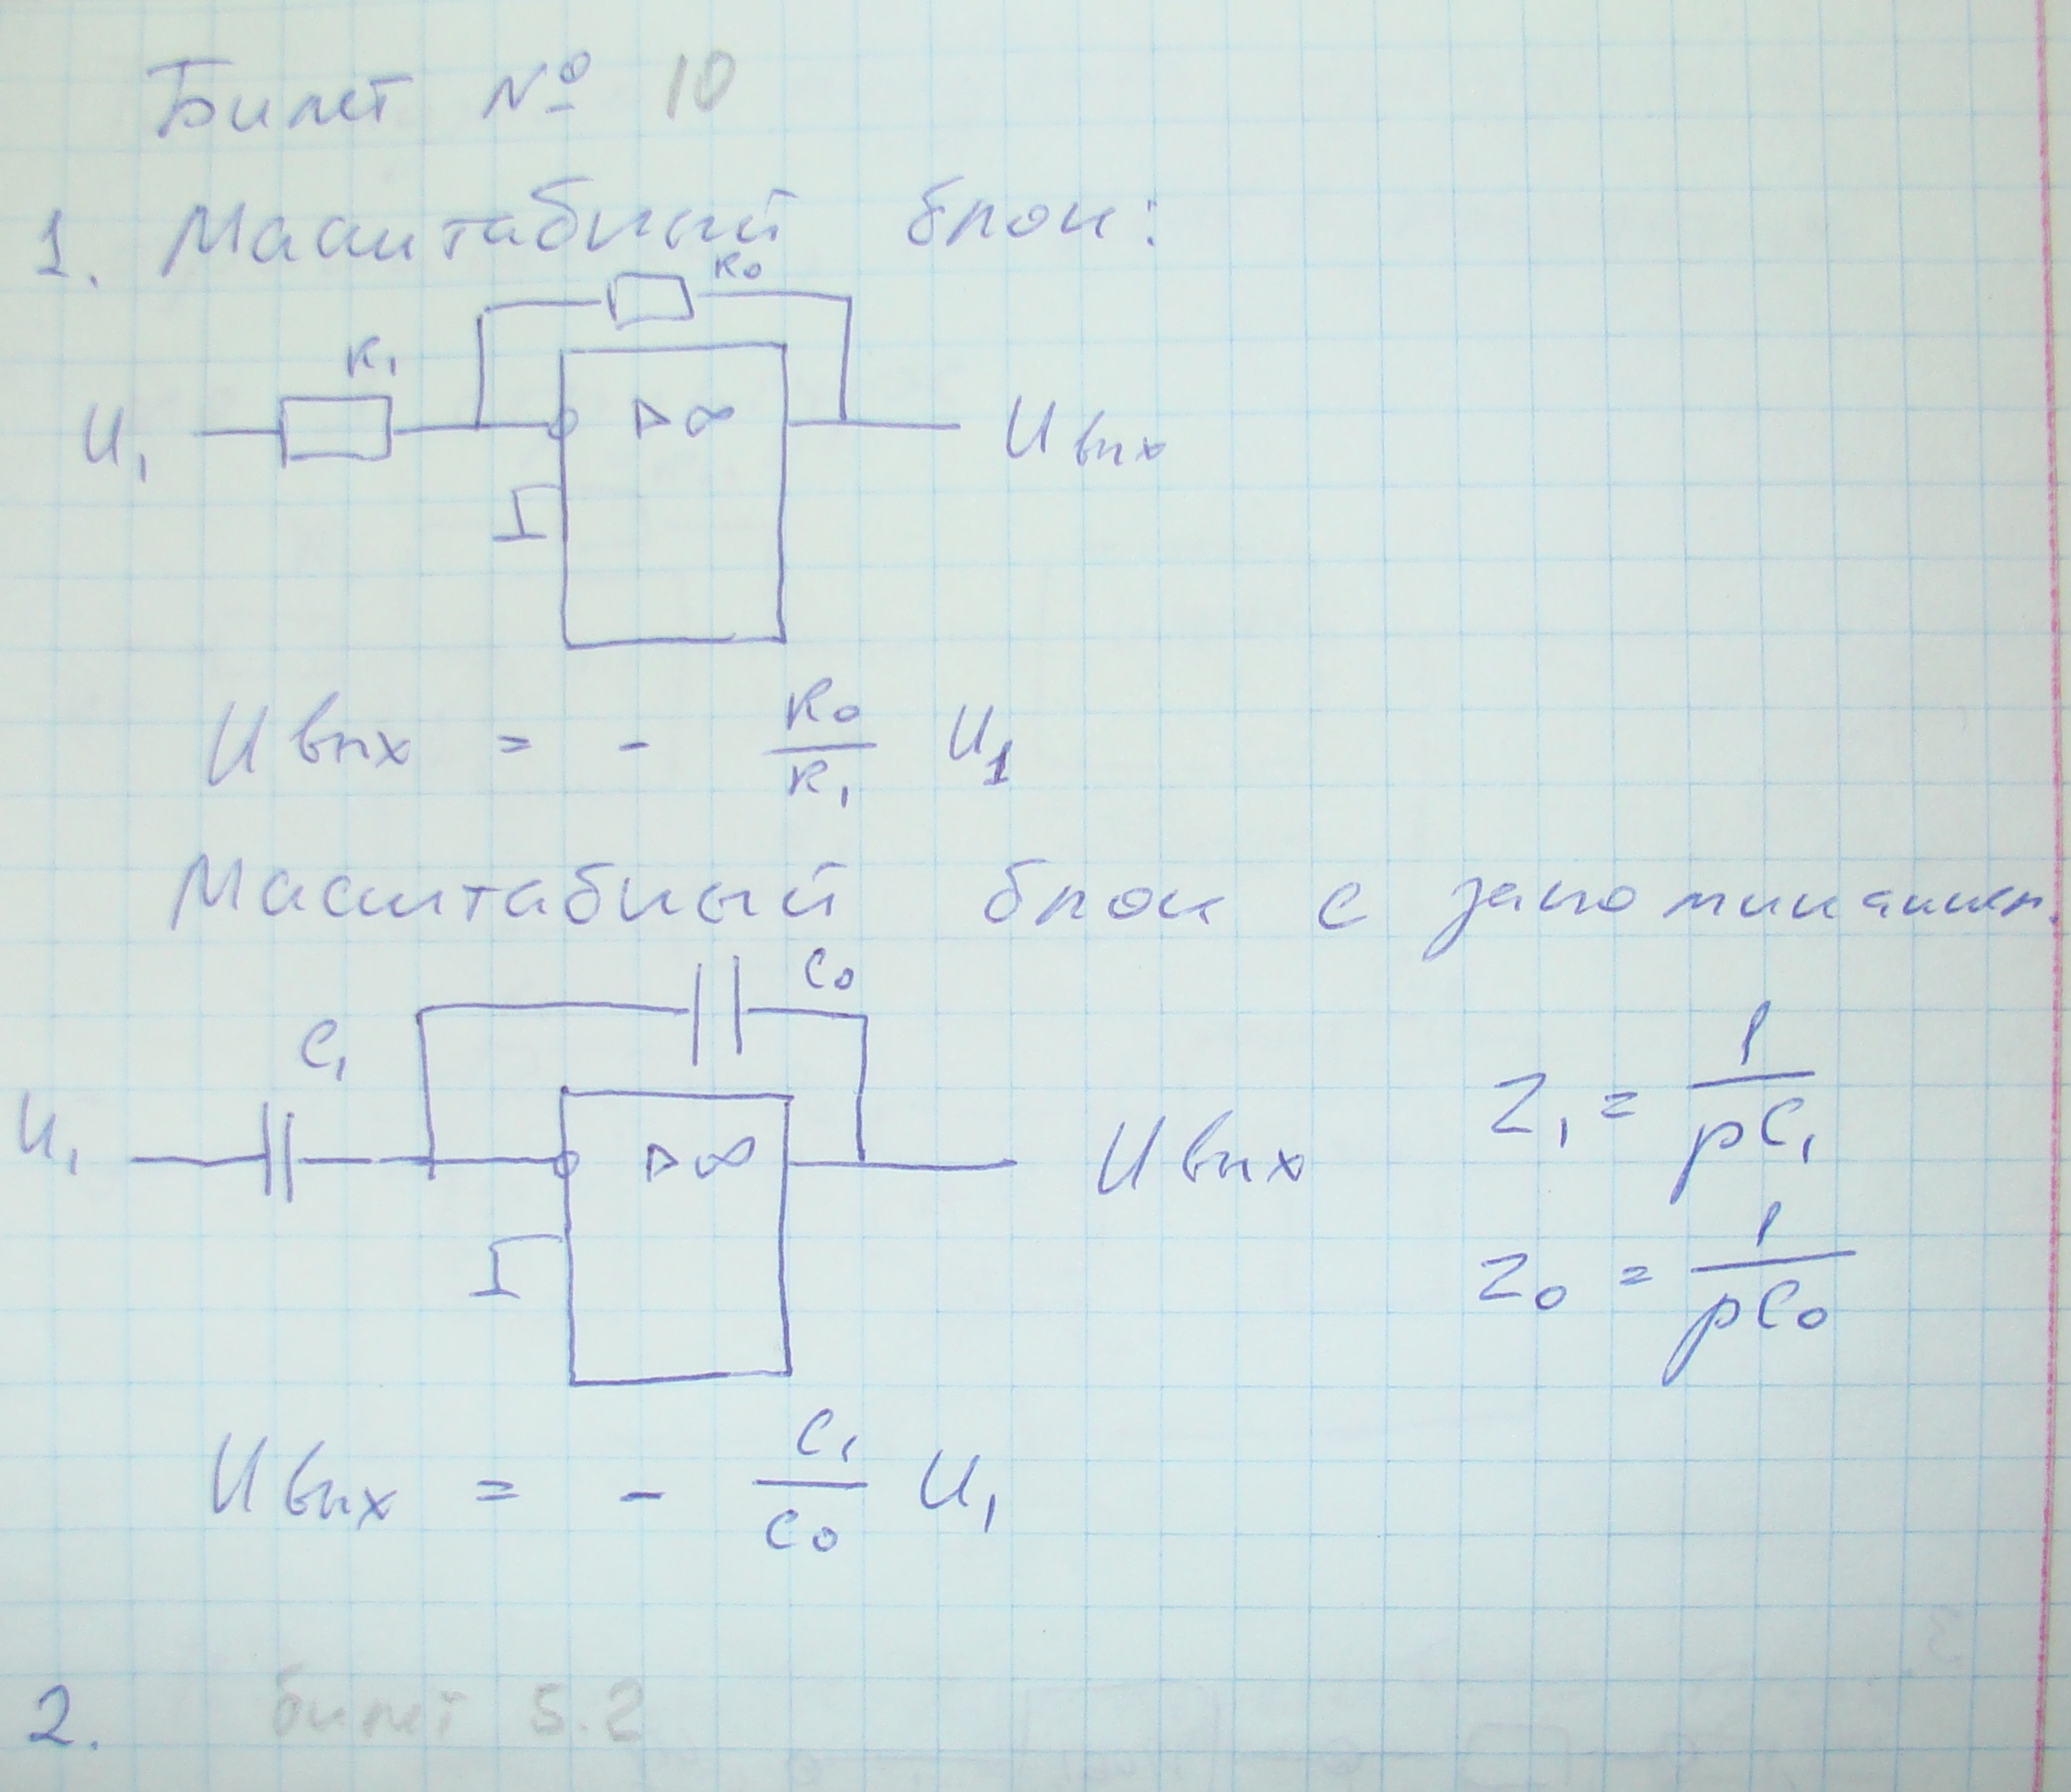 Билет № 10
1. Масштабный блок:
R₀
R₁
U₁ ▷∞ Uвых
Uвых = - R₀/R₁ U₁
Масштабный блок с запоминанием.
C₀
C₁
Z₁ = 1/pC₁
U₁ ▷∞ Uвых
Z₀ = 1/pC₀
Uвых = - C₁/C₀ U₁
2. билет 5.2